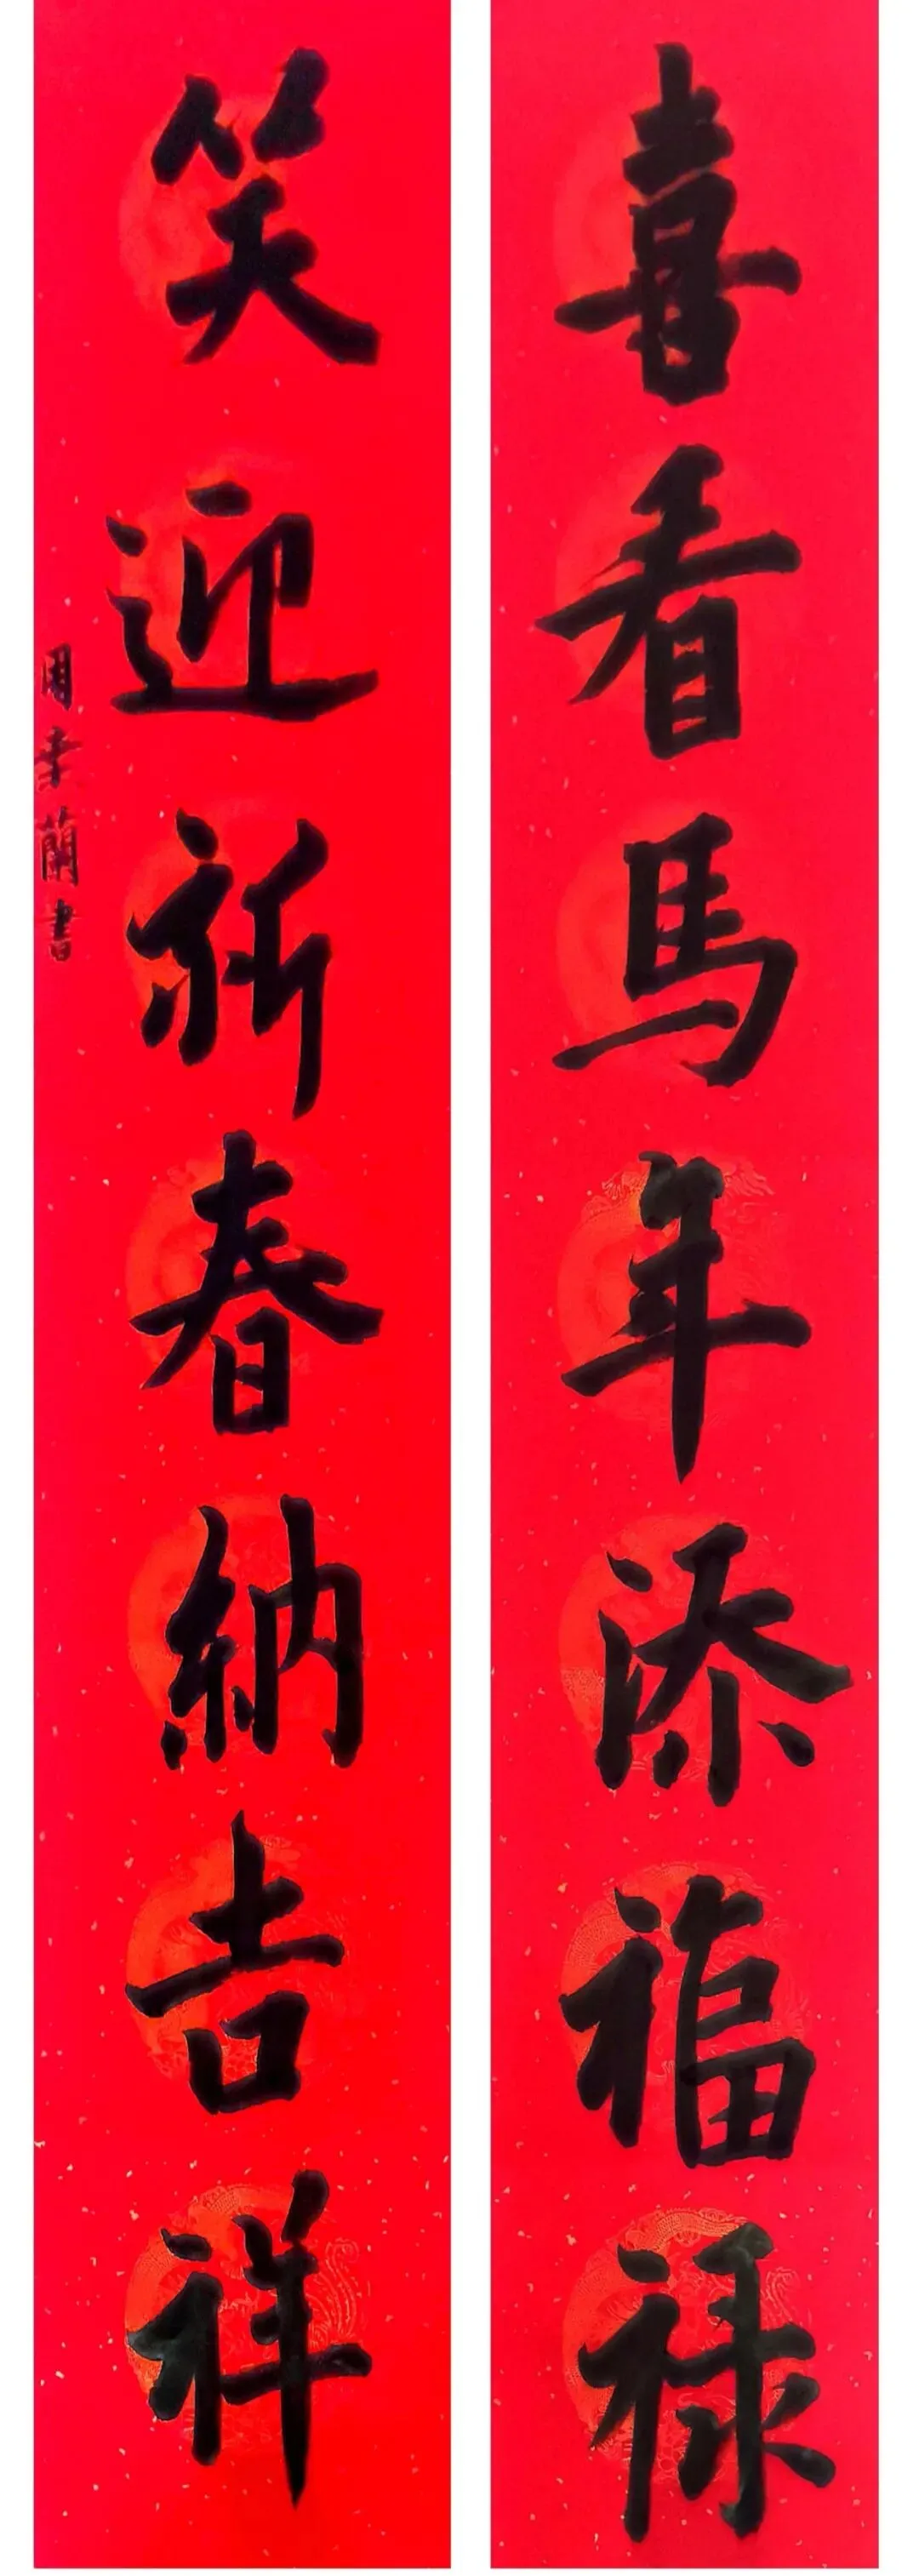 喜看馬年添福禄
笑迎新春納吉祥
周李蘭書